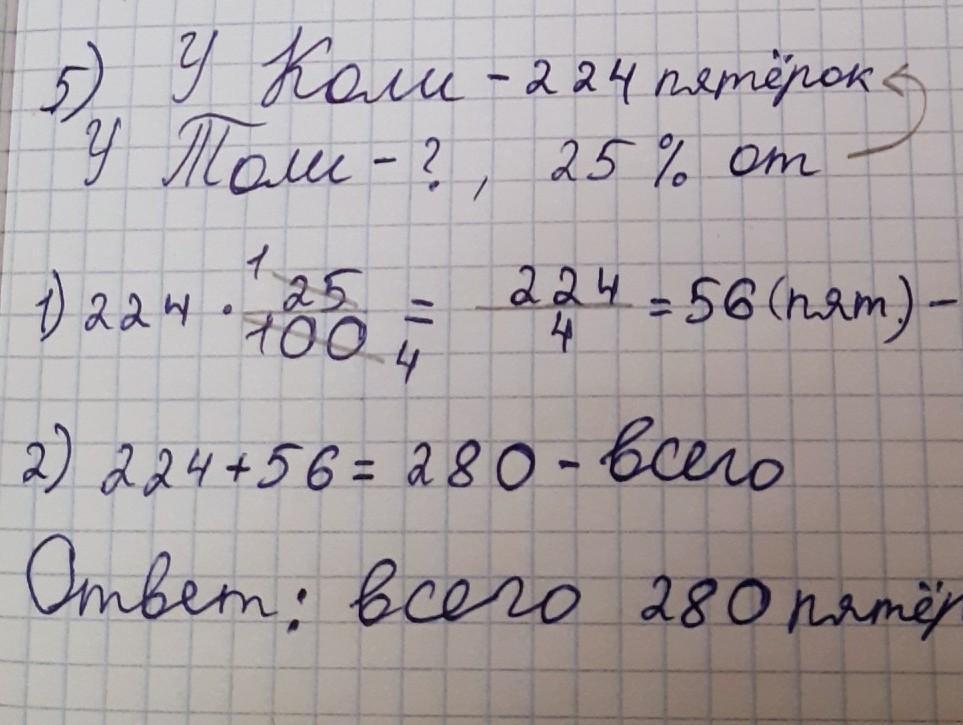 5) У Коли - 224 пятёрок
У Толи - ?, 25 % от
1) 224 · 25/100 = 224/4 = 56 (пят.) -
2) 224 + 56 = 280 - всего
Ответ: всего 280 пятёр